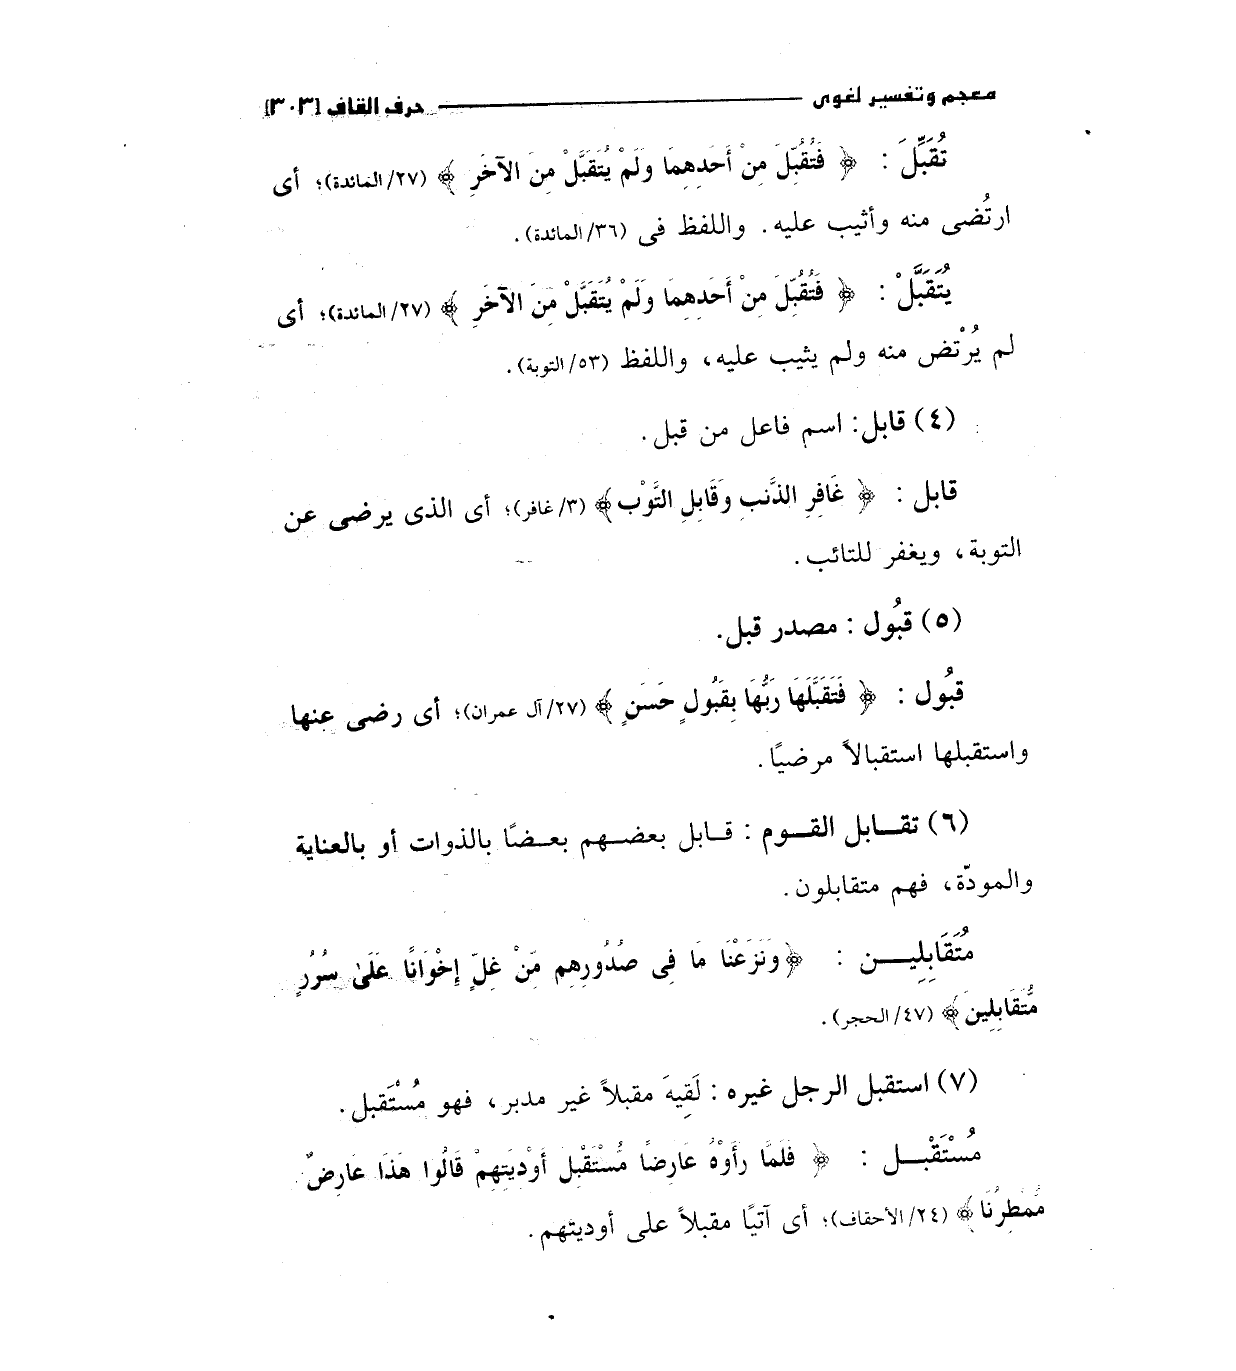 معجم وتفسير لغوى ــــــــ حرف القاف [٣٠٣]
تُقُبِّلَ : ﴿ فَتُقُبِّلَ مِنْ أَحَدِهِمَا وَلَمْ يُتَقَبَّلْ مِنَ الآخَرِ ﴾ (٢٧/ المائدة)؛ أى
ارتُضى منه وأثيب عليه. واللفظ فى (٣٦/ المائدة).
يُتَقَبَّلْ : ﴿ فَتُقُبِّلَ مِنْ أَحَدِهِمَا وَلَمْ يُتَقَبَّلْ مِنَ الآخَرِ ﴾ (٢٧/ المائدة)؛ أى
لم يُرْتض منه ولم يثيب عليه، واللفظ (٥٣/ التوبة).
(٤) قابل: اسم فاعل من قبل.
قابل : ﴿ غَافِرِ الذَّنبِ وَقَابِلِ التَّوْبِ﴾ (٣/ غافر)؛ أى الذى يرضى عن
التوبة، ويغفر للتائب.
(٥) قبُول : مصدر قبل.
قبُول : ﴿ فَتَقَبَّلَهَا رَبُّهَا بِقَبُولٍ حَسَنٍ ﴾ (٢٧/ آل عمران)؛ أى رضى عنها
واستقبلها استقبالاً مرضيًا.
(٦) تقـابل القـوم : قـابل بعضـهم بعـضًا بالذوات أو بالعناية
والمودّة، فهم متقابلون.
مُتَقَابِلِيـن : ﴿وَنَزَعْنَا مَا فِى صُدُورِهِم مِّنْ غِلٍّ إِخْوَانًا عَلَىٰ سُرُرٍ
مُّتَقَابِلِينَ﴾ (٤٧/ الحجر).
(٧) استقبل الرجل غيره : لَقِيهَ مقبلاً غير مدبر، فهو مُسْتَقبل.
مُسْتَقْبـل : ﴿ فَلَمَّا رَأَوْهُ عَارِضًا مُّسْتَقْبِلَ أَوْدِيَتِهِمْ قَالُوا هَذَا عَارِضٌ
مُّمْطِرُنَا﴾ (٢٤/ الأحقاف)؛ أى آتيًا مقبلاً على أوديتهم.